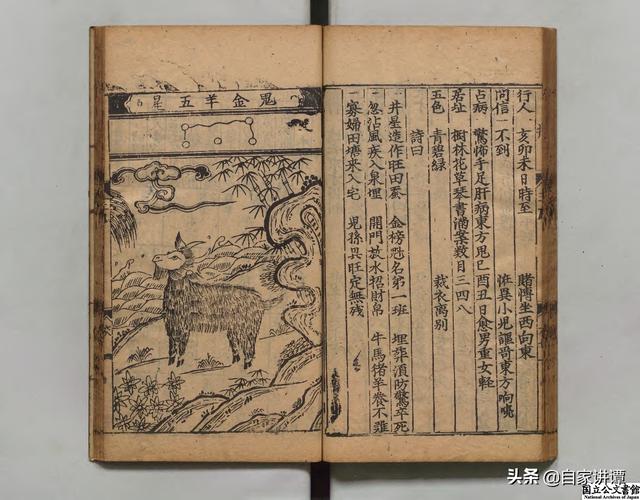 行人 亥卯未日時至 賭博坐西向東
問信 一不到 怪異小児謳哥東方响咷
占病 驚怖手足肝病東方鬼巳酉丑日愈男重女輕
居址 樹林花草琴書滿案數目三四八
五色 青碧綠 裁衣离別
詩曰
井星造作旺田蚕 金榜 名第一班 埋葬須防驚卒死
忽沾風疾入泉埋 開門放水招財帛 牛馬猪羊養不
寡婦田塘来入宅 児孫興旺定無残
鬼金羊五星
头条 @自家讲谭
国立公文書館
National Archives of Japan